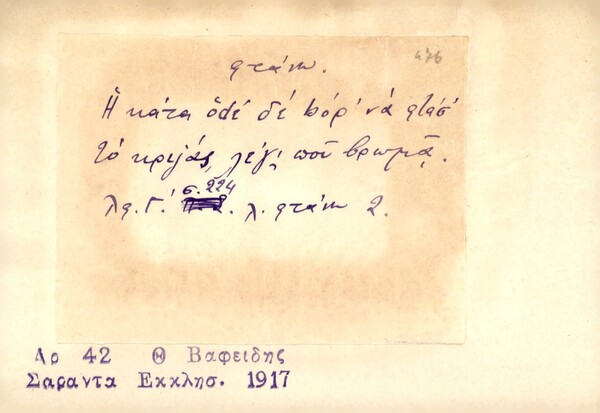 φτάνω.
476
Ἡ κάτα ὅdε δέ bόρ' νά φτάσ'
τό κριγιάς, λέγ' πού βρωμᾷ.
λφ. Γ.' σ. 224. λ. φτάνω 2.
Αρ 42 Θ Βαφειδης
Σαραντα Εκκλησ. 1917